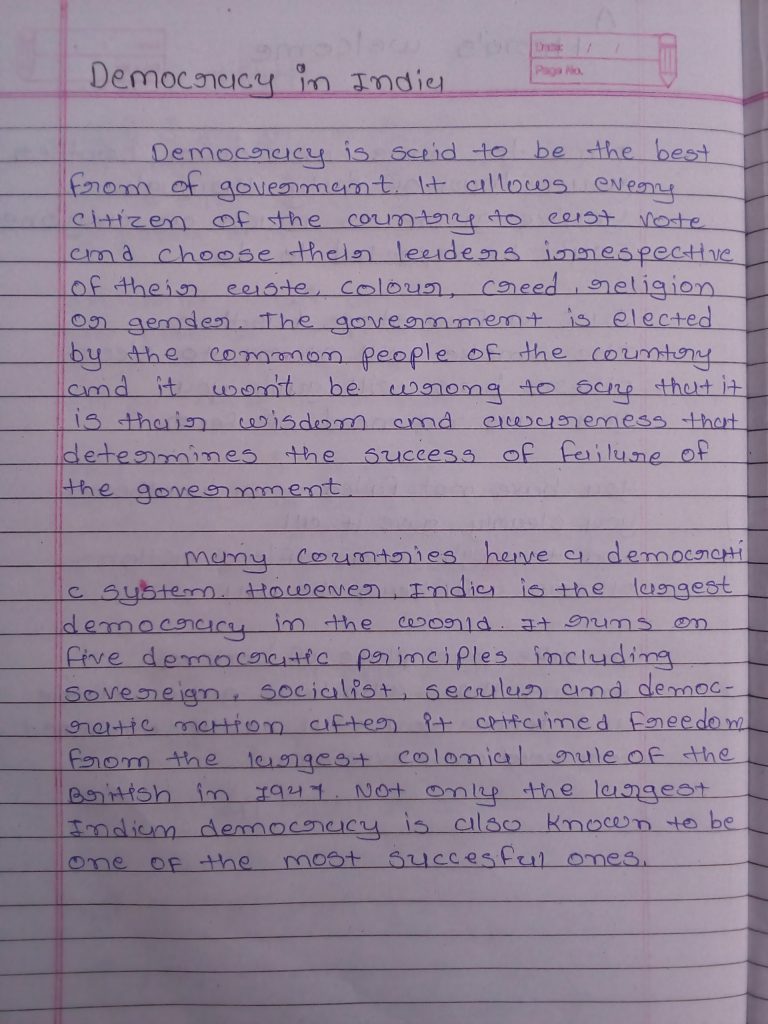 Date: / /
Page No.
Democracy in India
Democracy is said to be the best
from of goverment. It allows every
citizen of the country to cast vote
and choose their leaders irrespective
of their caste, colour, creed, religion
or gender. The government is elected
by the common people of the country
and it won't be wrong to say that it
is thair wisdom and awareness that
determines the success of failure of
the government.
many countries have a democrati
c system. However, India is the largest
democracy in the world. It runs on
five democratic principles including
sovereign, socialist, secular and democ-
ratic nation after it attained freedom
from the largest colonial rule of the
British in 1947. Not only the largest
Indian democracy is also known to be
one of the most succesful ones.